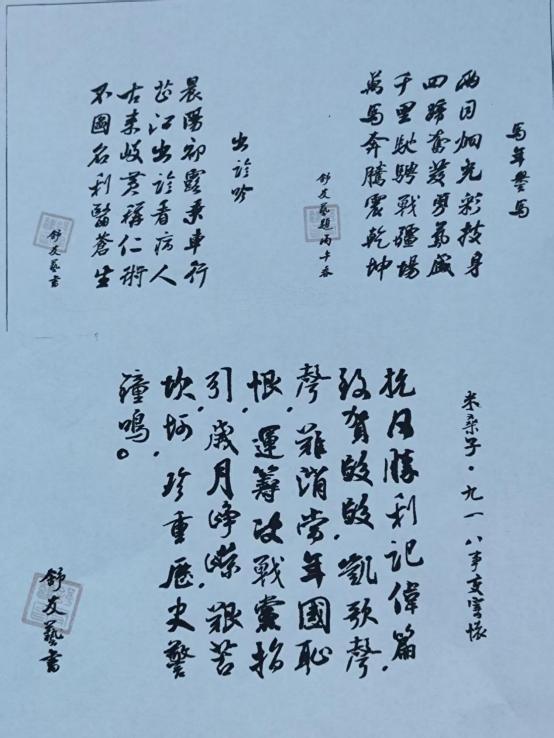 馬年馬
兩目炯光彩披身
四蹄奮發
千里馳騁戰疆場
萬馬奔騰震乾坤
舒友藝題丙午春
出診吟
晨陽初露乘車行
芷江出診看病人
古來岐黃稱仁術
不圖名利醫蒼生
舒友藝書
采桑子·九一八事变寄懷
抗日勝利記偉篇,
致賀,凱歌聲
聲,難消當年國恥
恨,運籌決戰黨指
引,歲月崢嶸艱苦
坎坷,珍重歷史警
鐘鳴。
舒友藝書